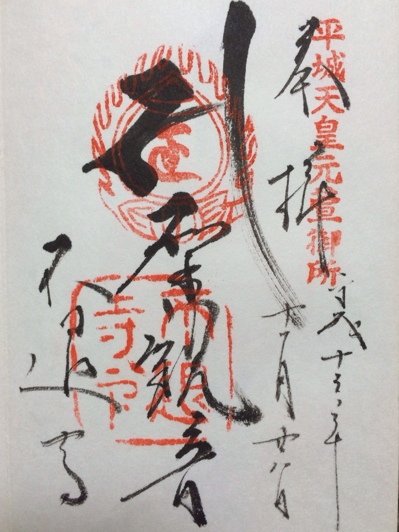 平城天皇元萱御所
奉拝
平成十三年
十一月廿八日
聖観音
不退寺